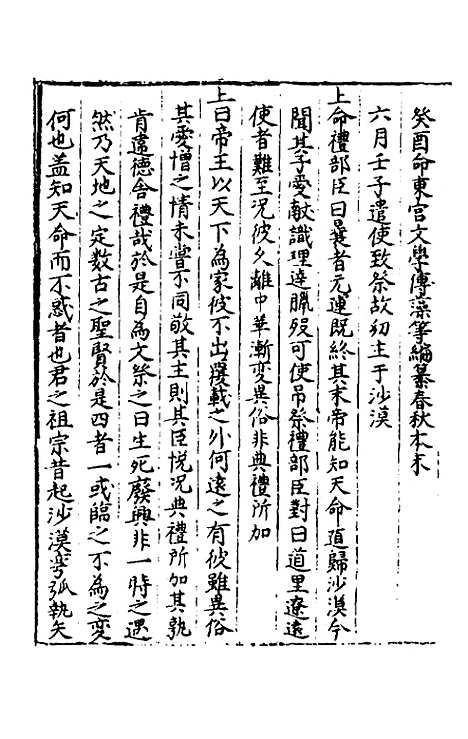 癸酉命東宮文學傅藻等編纂春秋本末
六月壬子遣使致祭故㓜主于沙漠
上命禮部臣曰曩者元運既終其末帝能知天命遁歸沙漠今
聞其子愛猷識理達臘歿可使吊祭禮部臣對曰道里遼遠
使者難至況彼久離中華漸變異俗非典禮所加
上曰帝王以天下為家彼不出覆載之外何遠之有彼雖異俗
其愛憎之情未嘗不同敬其主則其臣悅況典禮所加其孰
肯違德舍禮哉於是自為文祭之曰生死廢興非一時之遇
然乃天地之定数古之聖賢於是四者一或臨之不為之變
何也盖知天命而不惑者也君之祖宗昔起沙漠弯弧執矢